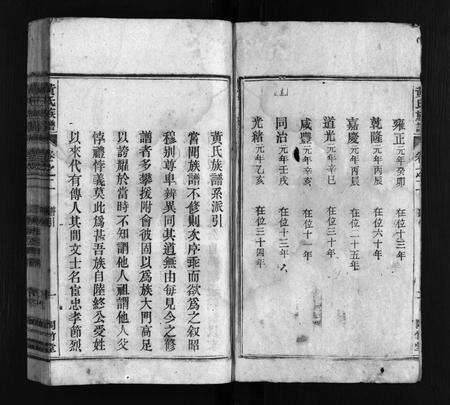 雍正元年癸卯 在位十三年
乾隆元年丙辰 在位六十年
嘉慶元年丙辰 在位二十五年
道光元年辛巳 在位三十年
咸豐元年辛亥 在位十一年
同治元年壬戌 在位十三年
光緒元年乙亥 在位三十四年
黃氏族譜系派引
嘗聞族譜不修則次序乖而欲為之叙昭
穆別尊卑辨異同其道無由每見今之修
譜者多攀援附會彼固以為族大門高足
以誇耀於當時不知謂他人祖謂他人父
悖禮悖義莫此為甚吾族自陸終公受姓
以來代有傳人其間文士名宦忠孝節烈
黃氏族譜
卷之一
譜引
一